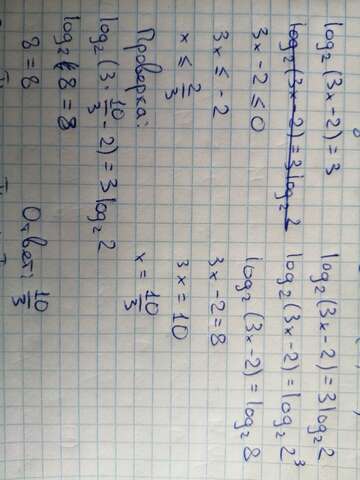 log₂(3x-2)=3
log₂(3x-2)=3log₂2
3x-2≤0
3x≤-2
x≤2/3
Проверка:
log₂(3·10/3-2)=3log₂2
log₂8=8
8=8
log₂(3x-2)=3log₂2
log₂(3x-2)=log₂2³
log₂(3x-2)=log₂8
3x-2=8
3x=10
x=10/3
Ответ: 10/3